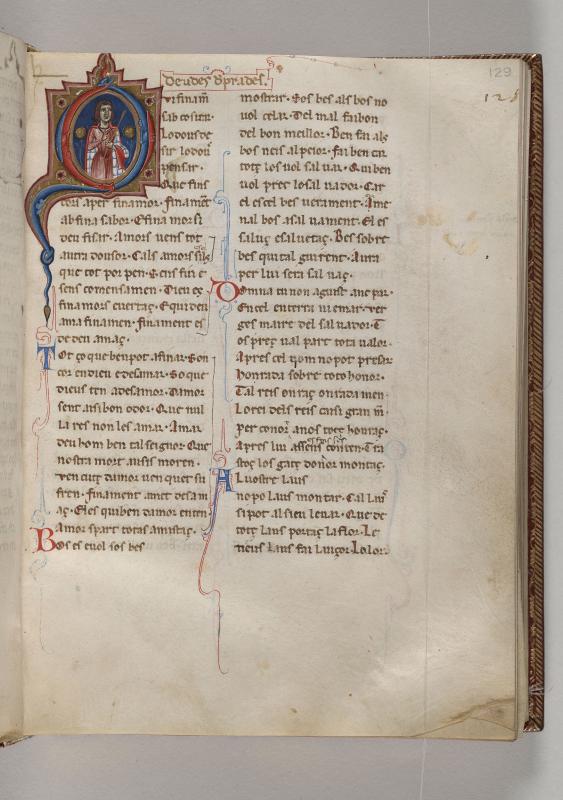 deudes de prades.
129
128
Qui finam̄
sab cosirar
lo dous de
sir lo doū
pensar.
Que fins
cors aper finamor. finamēt
ab fina sabor. E finamors si
deu fisar. Amors uens tot
autra dousor. Cals amors
que tot por pen. E ens fin e
sens comensamen. Dieu es
finamors e uertaç. E qui deu
ama finamen. finament es
de deu amaç.
Tot ço que ben pot afinar. Son
cor en dieu e desamar. So que
dieus ten a desamor. Damor
sent aisi bon odor. Que nul
la res non les amar. Amar
deu hom ben tal seignor. Que
nostra mort ausis moren.
Ven cutç damor uen quet su
fren. finament amet desam
aç. E les qui ben damor enten
Damor spart totas amistaç.
Bos es e uol sos bes
mostrar. Sos bes als bos no
uol celar. Del mal fai bon
del bon meillor. Ben fai als
bos neis al peior. fai ben en
totç los uol saluar. Qui ben
uol prec lo saluador. Car
el es cel bes uerament. Ame
nal bos a saluament. El es
saluç e saluetaç. Bes sobre
bes qui tal guirent. Aura
per lui sera saluaç.
Domna tu non agust anc par.
En cel en terra ni e mar. Ver
ges maire del saluador. T
os preç ual part tota ualor.
Apres cel nom no pot presar
honrada sobre tot honor.
Tal reis onraç onradamen.
Lo rei dels reis casi gran m̄
per conor anos totç honraç.
Apres lui
stos los gatç donor montaç.
A uostre laus
no po laus montar. Cal lau
si pot al sieu leuar. Que de
totç laus portaç la flor. Le
tieus laus fai lauçor. Lolor